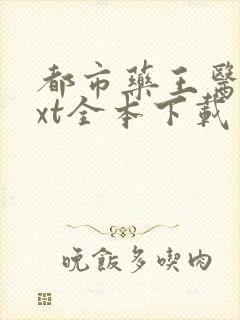 都市藥王醫
xt全本下載
晚飯多喫肉